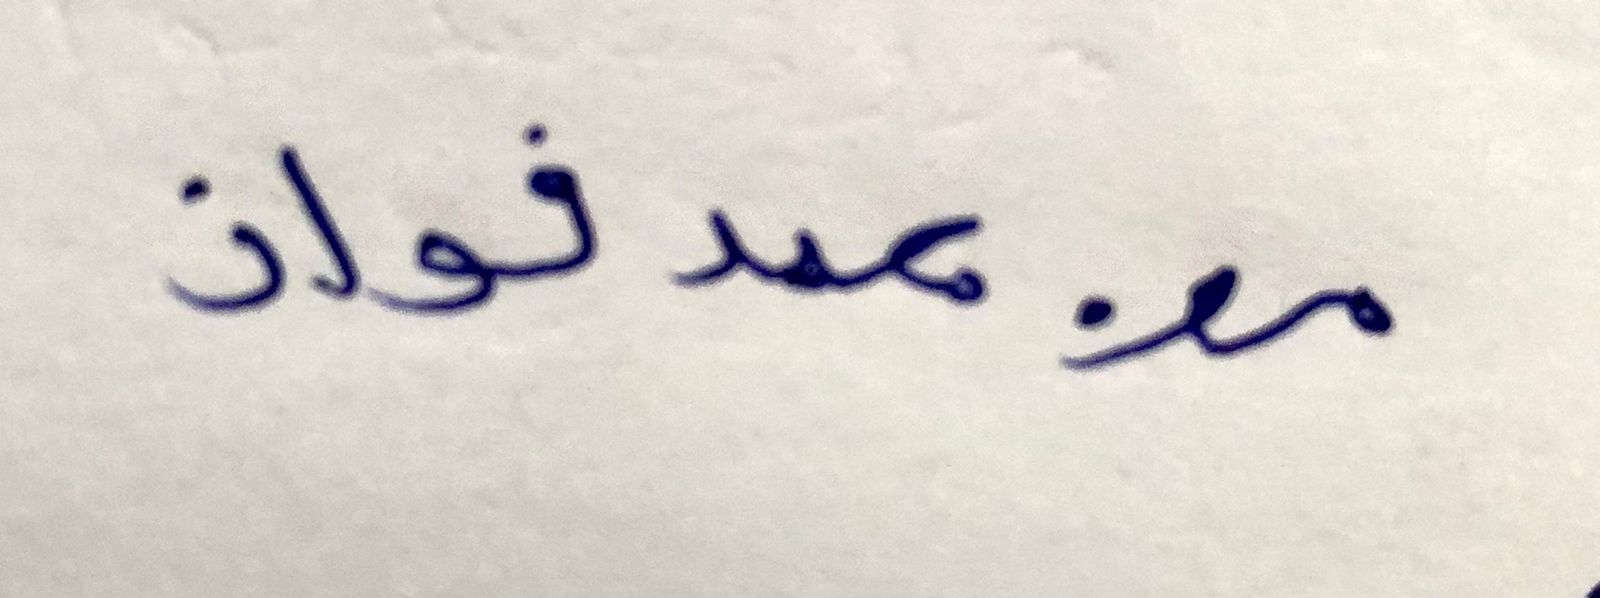 معز محمد فواز